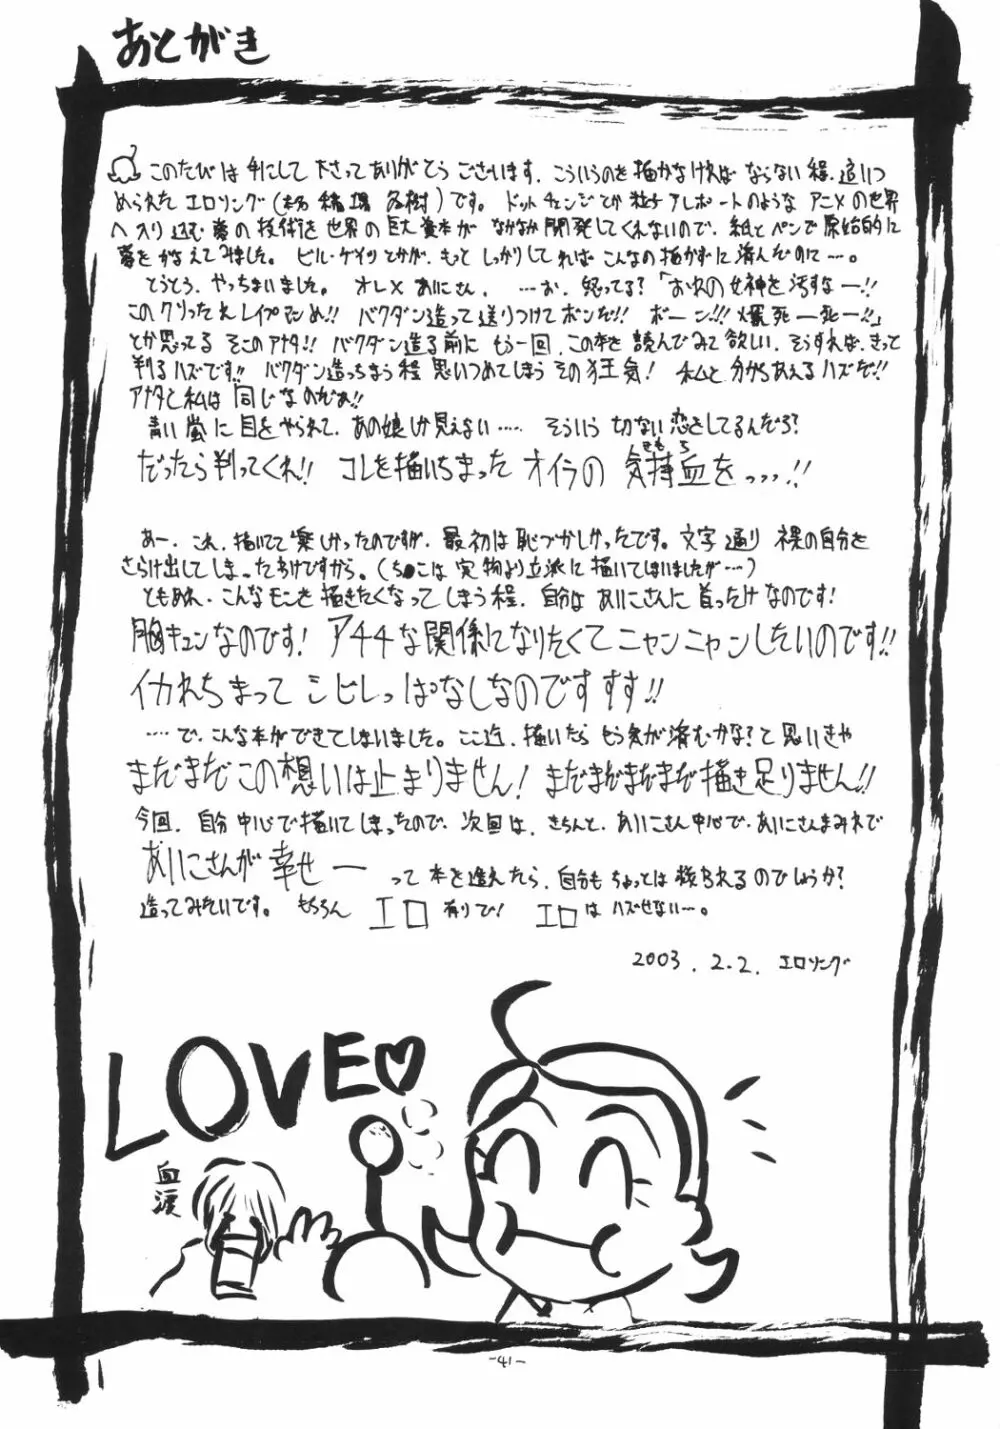 あとがき
このたびは手にして下さってありがとうございます。こういうのを描かなければならない程、追いつ
められたエロリング()です。ドットチェンジとか粒子アレポートのようなアニメの世界
へ入り込む夢の技術を世界の巨大資本がなかなか開発してくれないので、紙とペンで原始的に
夢をかなえてみました。ビル・ゲイツとかが、もっとしっかりしてればこんなの描かずに済んだのに…。
とうとう、やっちまいました。オレ×あいこさん。…お、怒ってる?「おれの女神を汚すなー!!
このクソったれレイプマンめ!!バクダン造って送りつけてボンだ!!ボーン!!!爆死ー死ー!!」
とか思ってるそこのアナタ!!バクダン造る前にもう一回、この本を読んでみて欲しい。そうすれば、きっと
判るハズです!!バクダン造っちまう程思いつめてしまうその狂気!私と分かちあえるハズだ!!
アナタと私は同じなのだぁ!!
青い蛍に目をやられて、あの娘しか見えない……そういう切ない恋をしてるんだろ?
だったら判ってくれ!!コレを描いちまったオイラの気持血をっ,,,!!
きもち
あー、これ、描いてて楽しかったのですが、最初は恥づかしかったです。文字通り裸の自分を
さらけ出してしまったわけですから。(ち●こは実物より立派に描いてしまいましたが…)
ともあれ、こんなモンを描きたくなってしまう程、自分はあいこさんに首ったけなのです!
胸キュンなのです!アチチな関係になりたくてニャンニャンしたいのです!!
イカれちまってシビレっぱなしなのですすす!!
…で、こんな本ができてしまいました。ここ迄、描いたらもう気が済むかな?と思いきや
まだまだこの想いは止まりません!まだまだまだまだ描き足りません!!
今回、自分中心で描いてしまったので、次回は、きちんと、あいこさん中心で、あいこさんまみれで
あいこさんが幸せーって本を造れたら、自分もちょっとは救われるのでしょうか?
造ってみたいです。もちろんエロ有りで!エロはハズせない…。
2003.2.2.エロリング
LOVE♡
血涙
-41-